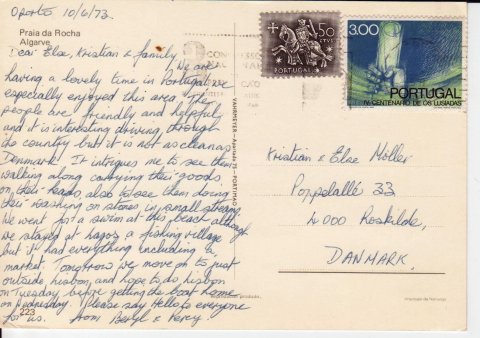 Oporto 10/6/73.
Praia da Rocha
Algarve
Dear Else, Kristian & family,
We are
having a lovely time in Portugal. We
especially enjoyed this area, the
people are friendly and helpful
and it is interesting driving through
the country but it is not as clean as
Denmark. It intrigues me to see them
walking along carrying their goods
on their heads, also to see them doing
their washing on stones in small streams.
We went for a swim at this beach although
we stayed at Lagos a fishing village
but it had everything including a
market. Tomorrow we move on to just
outside Lisbon and hope to do Lisbon
on Tuesday before getting the boat home
on Wednesday. Please say Hello to everyone
for us. from Beryl & Percy.
223
PORTUGAL
3.00
PORTUGAL
IV CENTENÁRIO DE OS LUSÍADAS
Kristian & Else Möller
Poppelallé 33
4000 Roskilde,
DANMARK.